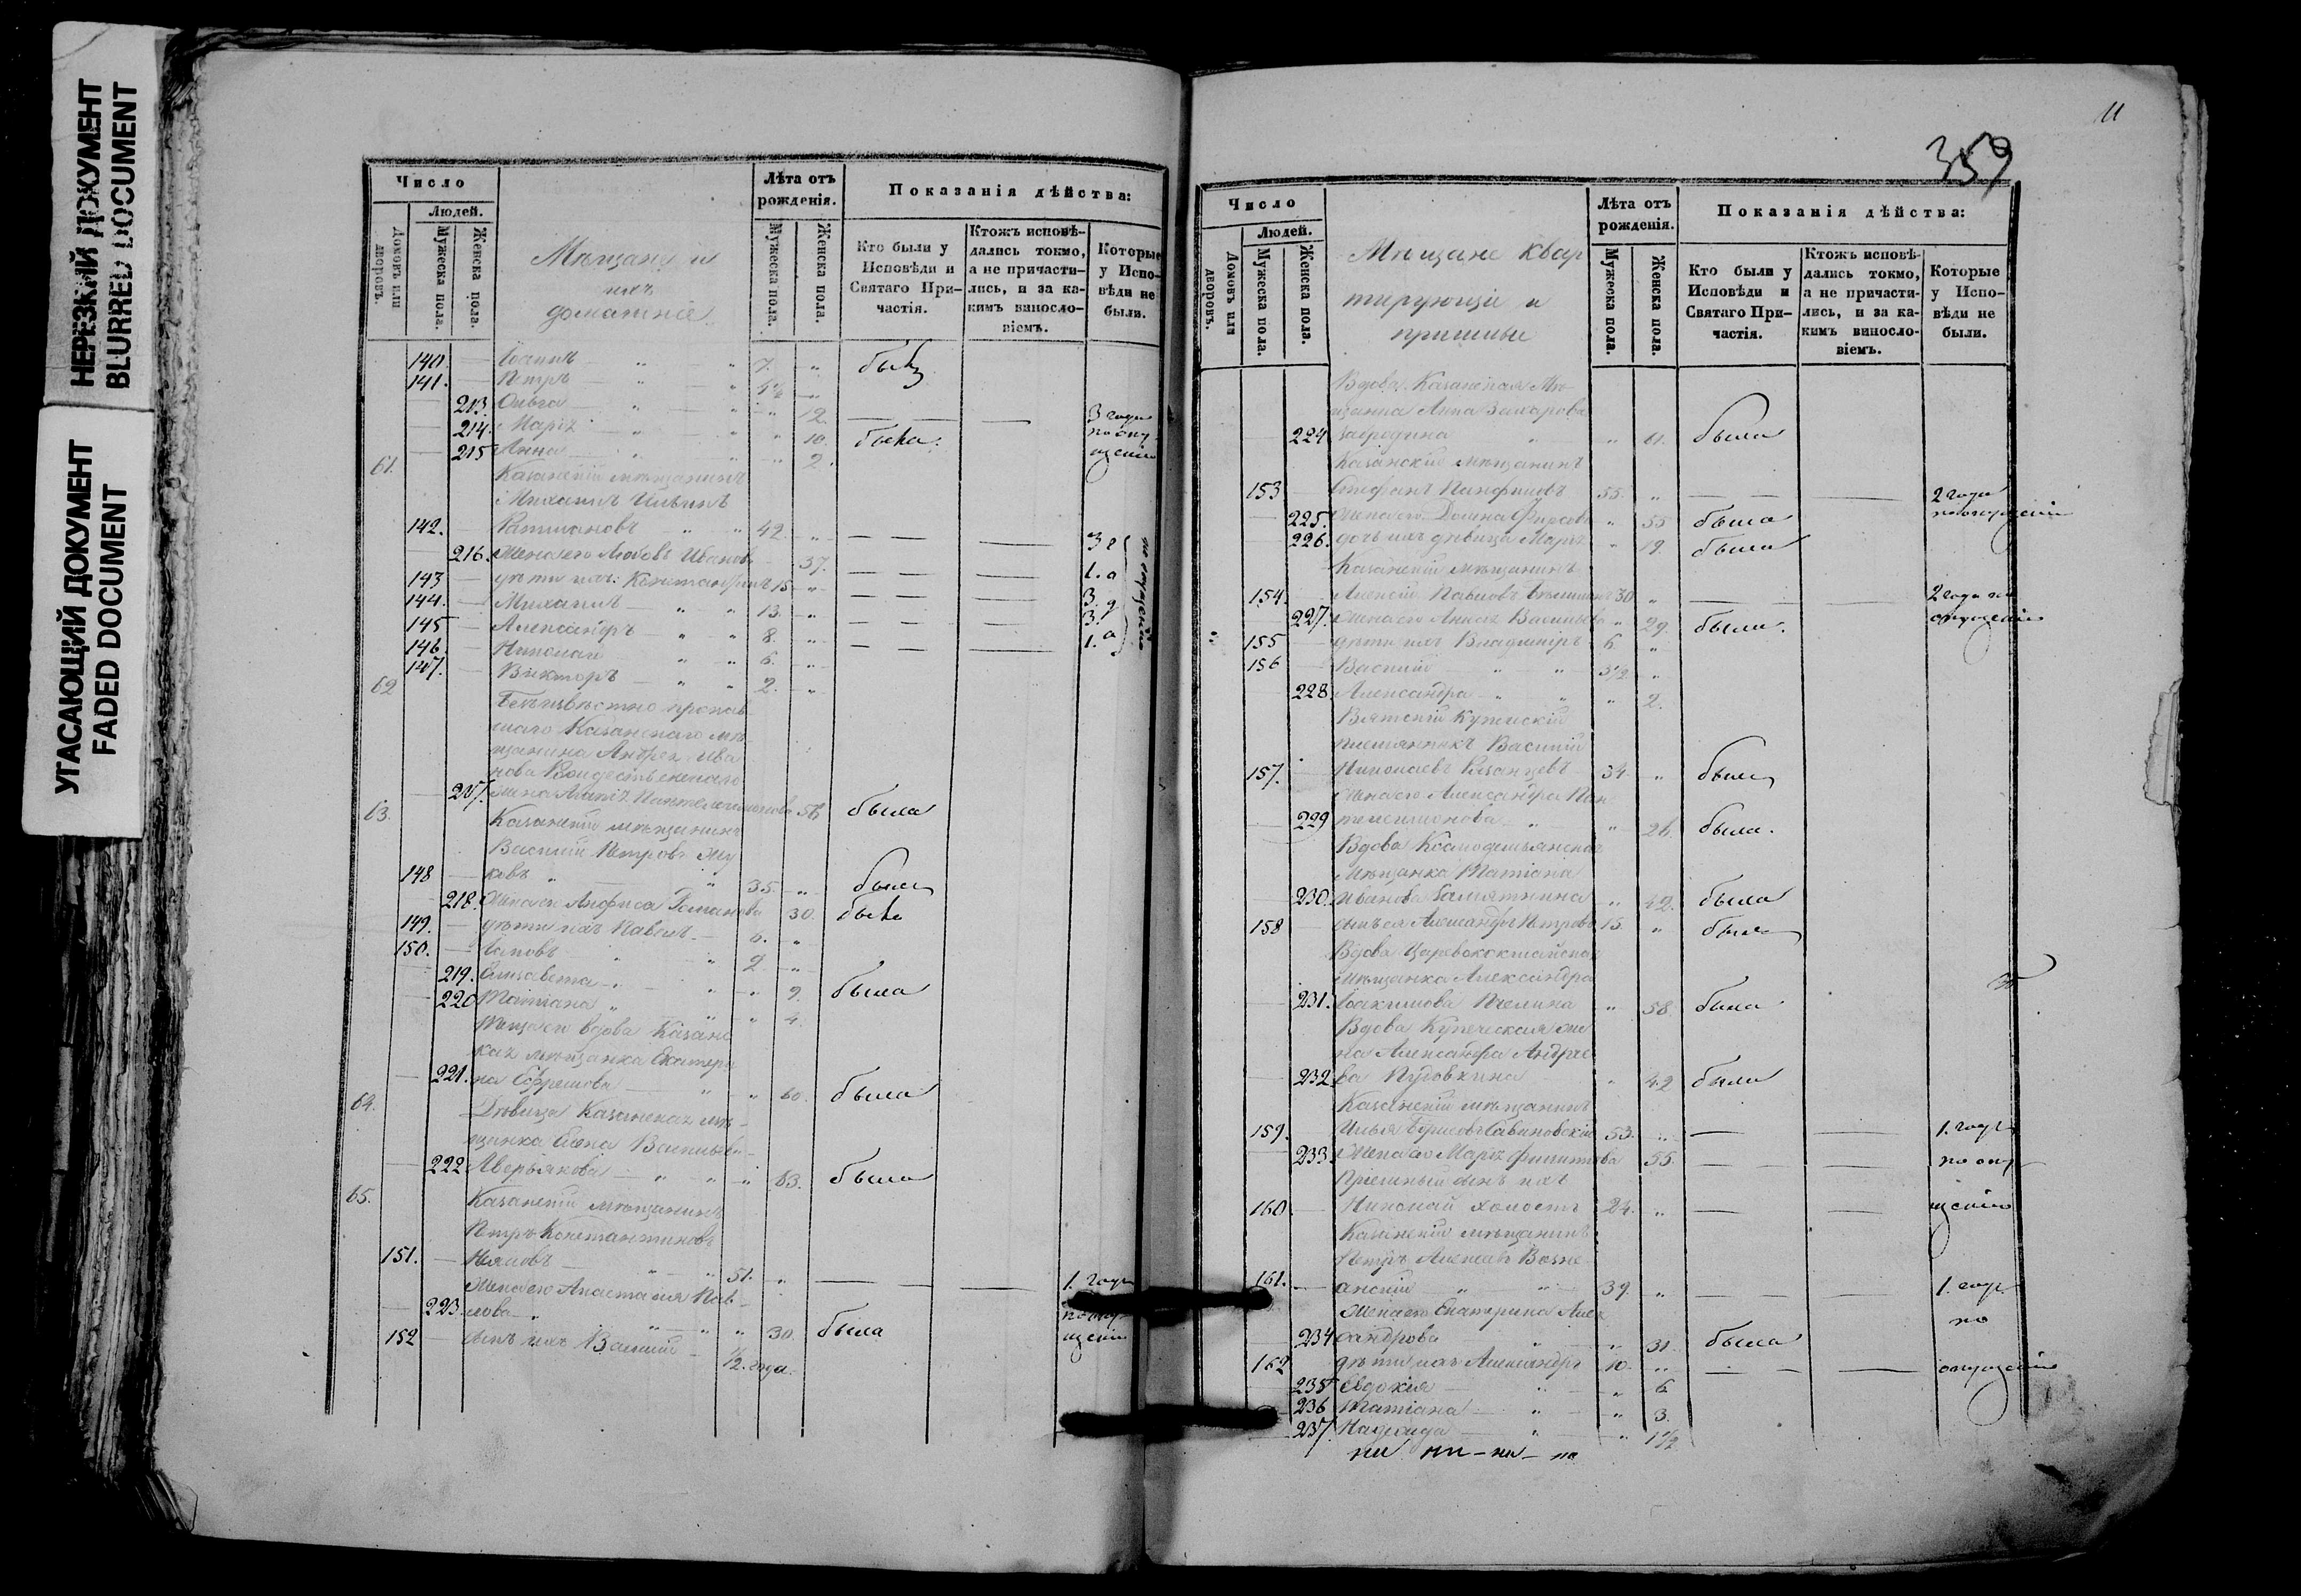 НЕРЕЗКИЙ ДОКУМЕНТ
BLURRED DOCUMENT
УГАСАЮЩИЙ ДОКУМЕНТ
FADED DOCUMENT
Число
Людей.
Домовъ или дворовъ.
Мужеска пола.
Женска пола.
Мѣщане и
ихъ
домашніе
Лѣта отъ рожденія.
Мужеска пола.
Женска пола.
Показанія дѣйства:
Кто были у Исповѣди и Святаго Причастія.
Ктожъ исповѣдались токмо, а не причастились, и за какимъ винословіемъ.
Которые у Исповѣди не были.
140. Іоаннъ 7.
141. Петръ
213. Ольга 12.
214. Марія 10. была
215 Анна 2.
3 года по опущенію
61. Казанскій мѣщанинъ
Михаилъ Ильинъ
142. 42.
216. Жена его Любовь Иванова 37.
143 дѣти ихъ: Константинъ 15
144. Михаилъ 13.
145 Александръ 8.
146. Николай 6.
147. Викторъ 2.
по опущенію
62 Безъизвѣстно пропав
шаго Казанскаго мѣ
щанина Андрея Ива
нова Рождественскаго
217. жена Марія Пантелеимонова 56 была
63. Казанскій мѣщанинъ
Василій Петровъ Жу
148 ковъ 35. былъ
218. Жена его Анфиса Романова 30. была
149. дѣти ихъ Павелъ 6.
150. Іаковъ 2
219. Елисавета 9. была
220 Татіана 4.
Теща его вдова Казанс
кая мѣщанка Екатери
221. на Ефремова 60. была
64. Дѣвица Казанская мѣ
щанка Елена Васильева
222 Аверьянова 63. была
65. Казанскій мѣщанинъ
Петръ Константиновъ
151. 51. 1. годъ
Жена его Анастасія Пав
223. лова 30. была
по опущенію
152 сынъ ихъ Василій 1/2 года.
11
359
Число
Людей.
Домовъ или дворовъ.
Мужеска пола.
Женска пола.
Мѣщане квар
тирующіе и
пришлые
Лѣта отъ рожденія.
Мужеска пола.
Женска пола.
Показанія дѣйства:
Кто были у Исповѣди и Святаго Причастія.
Ктожъ исповѣдались токмо, а не причастились, и за какимъ винословіемъ.
Которые у Исповѣди не были.
Вдова Казанская Мѣ
щанка Анна Захарова
224 61. была
Казанскій мѣщанинъ
153 Стефанъ Панфиловъ 55. 2 года
225. Жена его Домна Фирсова 55 была по опущенію
226. дочь ихъ дѣвица Марія 19. была
Казанскій мѣщанинъ
154. Алексій Павловъ 30 2 года по
227. Жена его Анна Васильева 29. была. опущенію
155 дѣти ихъ Владиміръ 6
156 Василій 3 1/2
228 Александра 2.
Вятскій Купеческій
племянникъ Василій
157. Николаевъ Рязанцевъ 34 былъ
Жена его Александра Пан
229 телеимонова 26. была.
Вдова Козмодемьянская
Мѣщанка Татіана
230. Иванова 42. была
158 сынъ ея Александръ Петровъ 15. былъ
Вдова Царевококшайская
Мѣщанка Александра
231. Іоакимова Пчелина 58 была
Вдова Купеческая же
на Александра Андрее
232 ва Пудовкина 42 была
Казанскій мѣщанинъ
159. Илья Савиновскій 53. 1. годъ
233. Жена его Марія Филиппова 55. по опу
Пріемный сынъ ихъ
160 Николай холостъ 24. щенію
Казанскій мѣщанинъ
Петръ Алексѣевъ Возне
161. сенскій 39. 1. годъ
Жена его Екатерина Алек
по
234 сандрова 31. была
162 дѣти ихъ Александръ 10. опущенію
235 Евдокія 6
236 Татіана 3.
237. Надежда 1 1/2